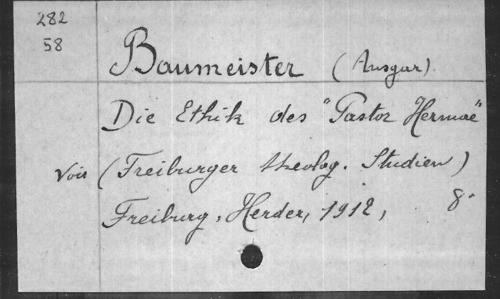 282
58
Baumeister (Ansgar).
Die Ethik des "Pastor Hermae"
Voir (Freiburger theolog. Studien)
Freiburg, Herder, 1912, 8°